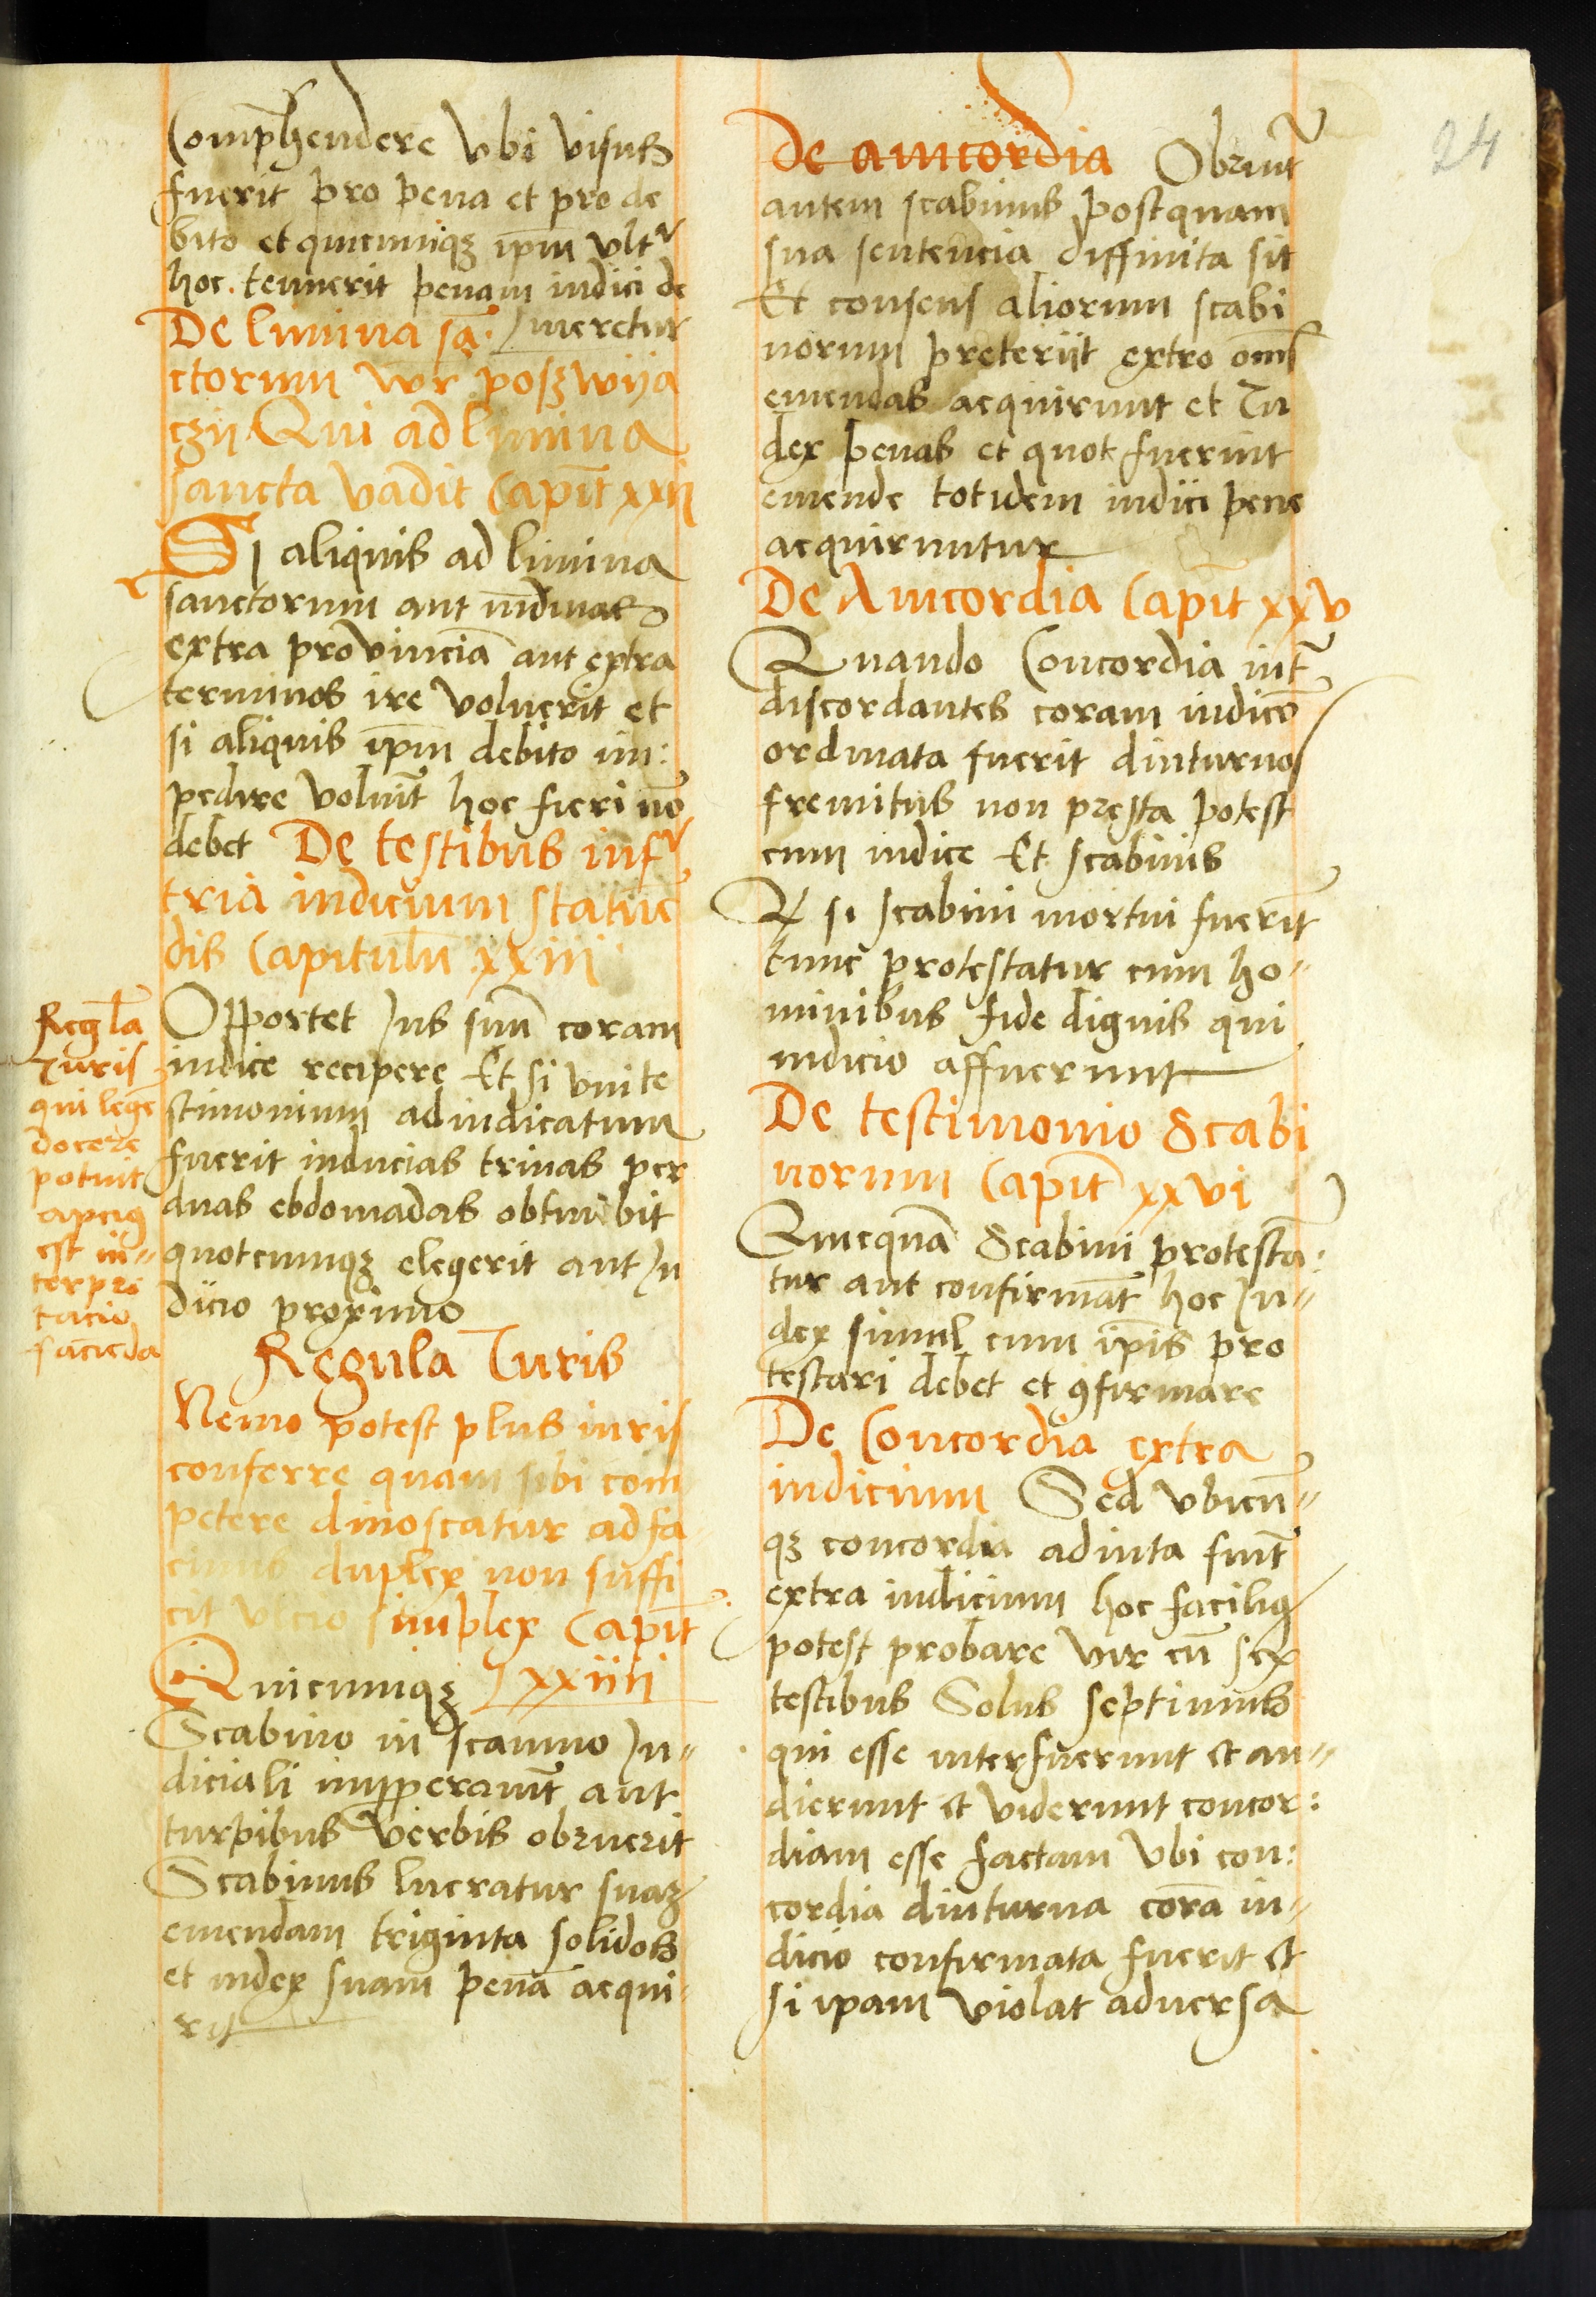 24
Comp̄hendere vbi visus
fuerit pro pena et pro de
bito et quicunqꝫ ip̄m vltr
hoc. tenuerit penam iudici de
De limina sā. meretur
ctorum wr poszwija
czij Qui ad limina
sancta vadit Capit̄ xxij
Si aliquis ad limina
sanctorum aut nūdinas
extra provinciā aut extra
terminos ire voluerit et
si aliquis ip̄m debito im:
pedire voluīt hoc fieri nō
debet De testibus infr
tria iudicium statuē
dis Capitulū xxiij
Opportet Jus suū coram
iudice recipere Et si vni te
stimonium adiudicatum
fuerit inducias trinas per
duas ebdomadas obtinebit
quotcunqꝫ elegerit aut Ju
dicio proximo
Regl̄a
Juris
qui legē
docere
potuit
apciꝯ
est in〃
terpre
tacio
faciēda
Regula Juris
Nemo potest plus iuris
conferre quam sibi com
petere dinoscatur ad fa
cinus duplex non suffi
cit vlcio simplex Capit̄
Quicunqꝫ xxiiij
Scabino in scamno Ju〃
diciali impperauit̄ aut
turpibus verbis obruerit
Scabinus lucratur suaꝫ
emendam triginta solidos
et iudex suam penā acqui
rit
De amcordia Obruit̄
autem scabinus postquam
sua sentencia diffinita sit
Et consens aliorum scabi
norum preteriit extro om̄s
emendas acquirunt et Ju
dex penas et quot fuerint
emende totidem iudici pene
acquiruntur
De Amcordia Capit̄ xxv
Quando Concordia int̄
discordantes coram iudicē
ordinata fuerit diuturnos
fremitus non presta potest
cum iudice Et scabinis
Et si scabini mortui fuerīt
tunc protestatur cum ho〃
minibus fide dignis qui
iudicio affuerunt
De testimonio Scabi
norum Capit̄ xxvi
Quicquā Scabini protestā:
tur aut confirmāt hoc Ju〃
dex simul cum ip̄is pro
testari debet et ꝯfirmare
De Concordia extra
iudicium Sed vbicū〃
qꝫ concordia adiuta fuīt
extra iudicium hoc faciliꝯ
potest probare vir cū sex
testibus Solus septimus
qui esse interfuerunt et au〃
dierunt et viderunt concor:
diam esse factam Vbi con:
cordia diuturna corā iu〃
dicio confirmata fuerit et
si ipam violat aduersa